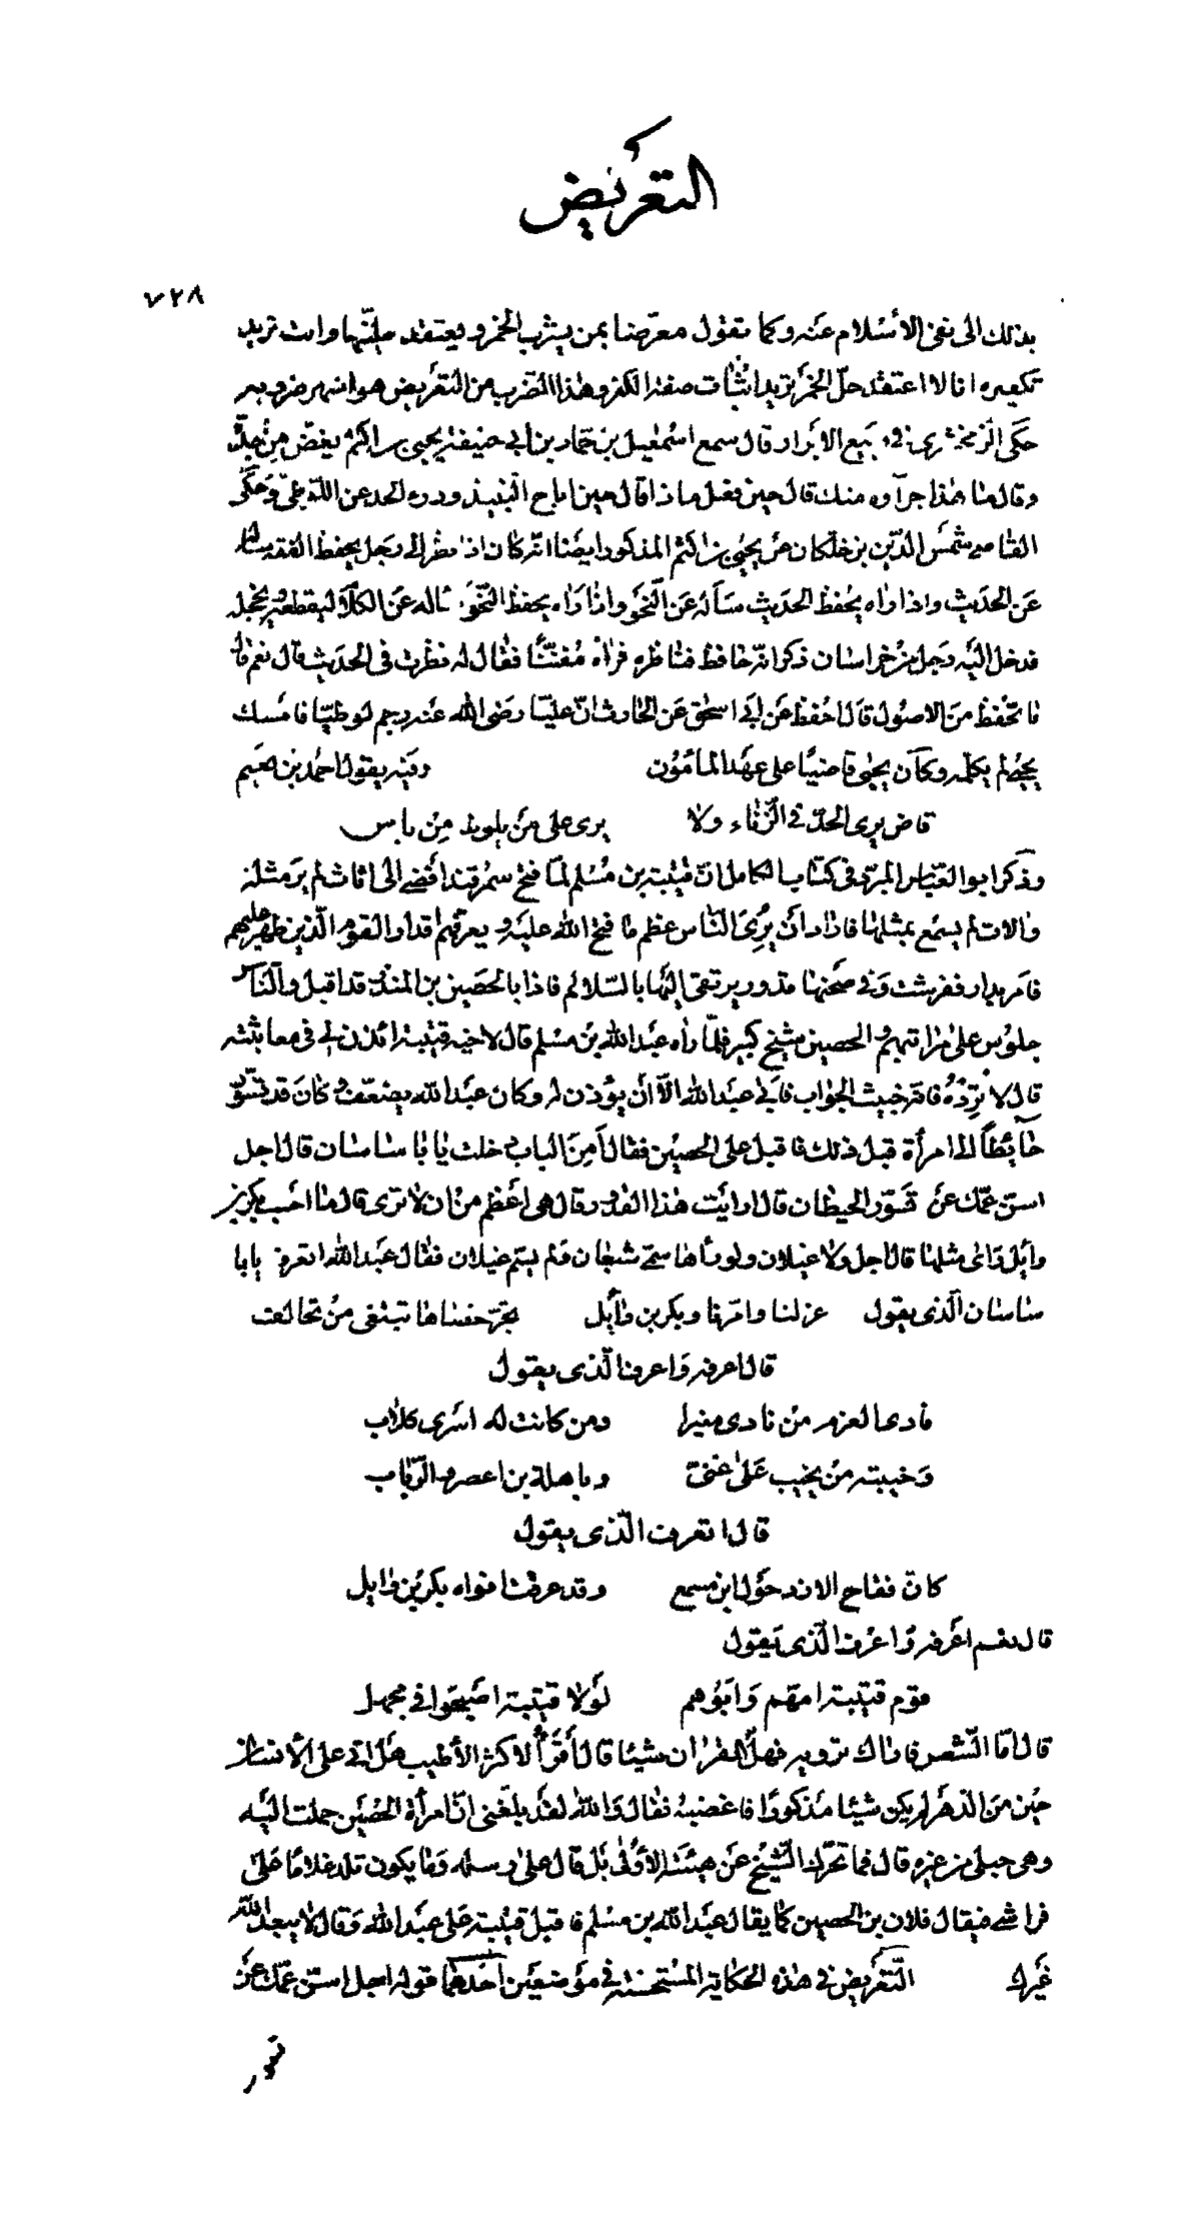 التعريض
٧٢٨
بذلك الى نفى الاسلام عنه وكما تقول معرّضا بمن يشرب الخمر ويعتقد حلّيتها وانت تريد
تكفيره انا لا اعتقد حلّ الخمر تريد اثبات صفة الكفر وهذا الضرب من التعريض هو اشهر ضروبه
حكى الزمخشرى فى ربيع الابرار قال سمع اسمعيل بن حمّاد بن ابى حنيفة يحيى بن اكثم يغضّ من جدّه
وقال ما هذا جزآوه منك قال حين فعل ماذا قال حين اباح النبيذ ودرء الحد عن اللوطى وحكى
القاضى شمس الدّين بن خلكان عن يحيى بن اكثم المذكور ايضا انّه كان اذا نظر الى رجل يحفظ الفقه سأله
عن الحديث واذا رآه يحفظ الحديث سأله عن النّحو واذا رآه يحفظ النّحو سأله عن الكلام ليقطعه ويخجله
فدخل اليه رجل من خراسان ذكر انّه حافظ فناظره فرآه مفنّنا فقال له نظرت فى الحديث قال نعم قال
ما تحفظ من الاصول قال احفظ عن ابى اسحق عن الحارث انّ عليّا رضى الله عنه رجم لوطيّا فامسك
يحيى لم يكلمه وكان يحيى قاضيا على عهد المامون وفيه يقول احمد بن نعيم
قاض يرى الحدّ فى الزناء ولا يرى على من يلوط من باس
وذكر ابو العباس المبرّد فى كتاب الكامل انّ قتيبة بن مسلم لمّا فتح سمرقند افضى الى اثاث لم ير مثله
والات لم يسمع بمثلها فاراد ان يرى الناس عظم ما فتح الله عليه ويعرفهم اقدار القوم الّذين ظهر عليهم
فامر بدار ففرشت وفى صحنها قدور يرتقى اليها بالسّلالم فاذا بالحضين بن المنذر قد اقبل والنّاس
جلوس على مراتبهم والحضين شيخ كبير فلمّا راه عبد الله بن مسلم قال لاخيه قتيبة ائذن لى فى معابثته
قال لا تردّه فانّه خبيث الجواب فابى عبد الله الّا ان يؤذن له وكان عبد الله يضعّف وكان قد تسوّر
حائطا الى امرأة قبل ذلك فاقبل على الحضين فقال امن الباب دخلت يا با ساسان قال اجل
اسنّ عمّك عن تسوّر الحيطان قال ارايت هذا القدور قال هى اعظم من ان لا ترى قال ما احسب بكر بن
وآيل راى مثلها قال اجل ولا عيلان ولو راها سمّى شبعان ولم يسمّ عيلان فقال عبد الله اتعرف يا با
ساسان الّذى يقول عزلنا وامّرنا وبكر بن وآيل تجرّ خصاها تبتغى من تحالف
قال اعرفه واعرف الّذى يقول
فادى الغرم من نادى مشيرا ومن كانت له اسرى كلاب
وخيبة من يخيب على غنىّ وباهلة بن اعصر والرّباب
قال اتعرف الّذى يقول
كانّ فقاح الازد حول ابن مسمع وقد عرقت افواه بكر بن وايل
قال نعم اعرفه واعرف الّذى يقول
قوم قتيبة امّهم وابوهم لولا قتيبة اصبحوا فى مجهل
قال امّا الشّعر فاراك ترويه فهل تقرأ من القران شيئا قال أقرأ الاكثر الأطيب هل اتى على الانسان
حين من الدّهر لم يكن شيئا مذكورا فاغضبه فقال والله لقد بلغنى انّ امرأة الحضين حملت اليه
وهى حبلى من غيره قال فما تحرّك الشّيخ عن هيئته الاولى بل قال على رسله وما يكون تلد غلاما على
فراشى فيقال فلان بن الحضين كما يقال عبد الله بن مسلم فاقبل قتيبة على عبد الله وقال لا يبعد الله
غيرك التّعريض فى هذه الحكاية المستحسنة فى موضعين احدهما قوله اجل اسنّ عمّك عن
تسور